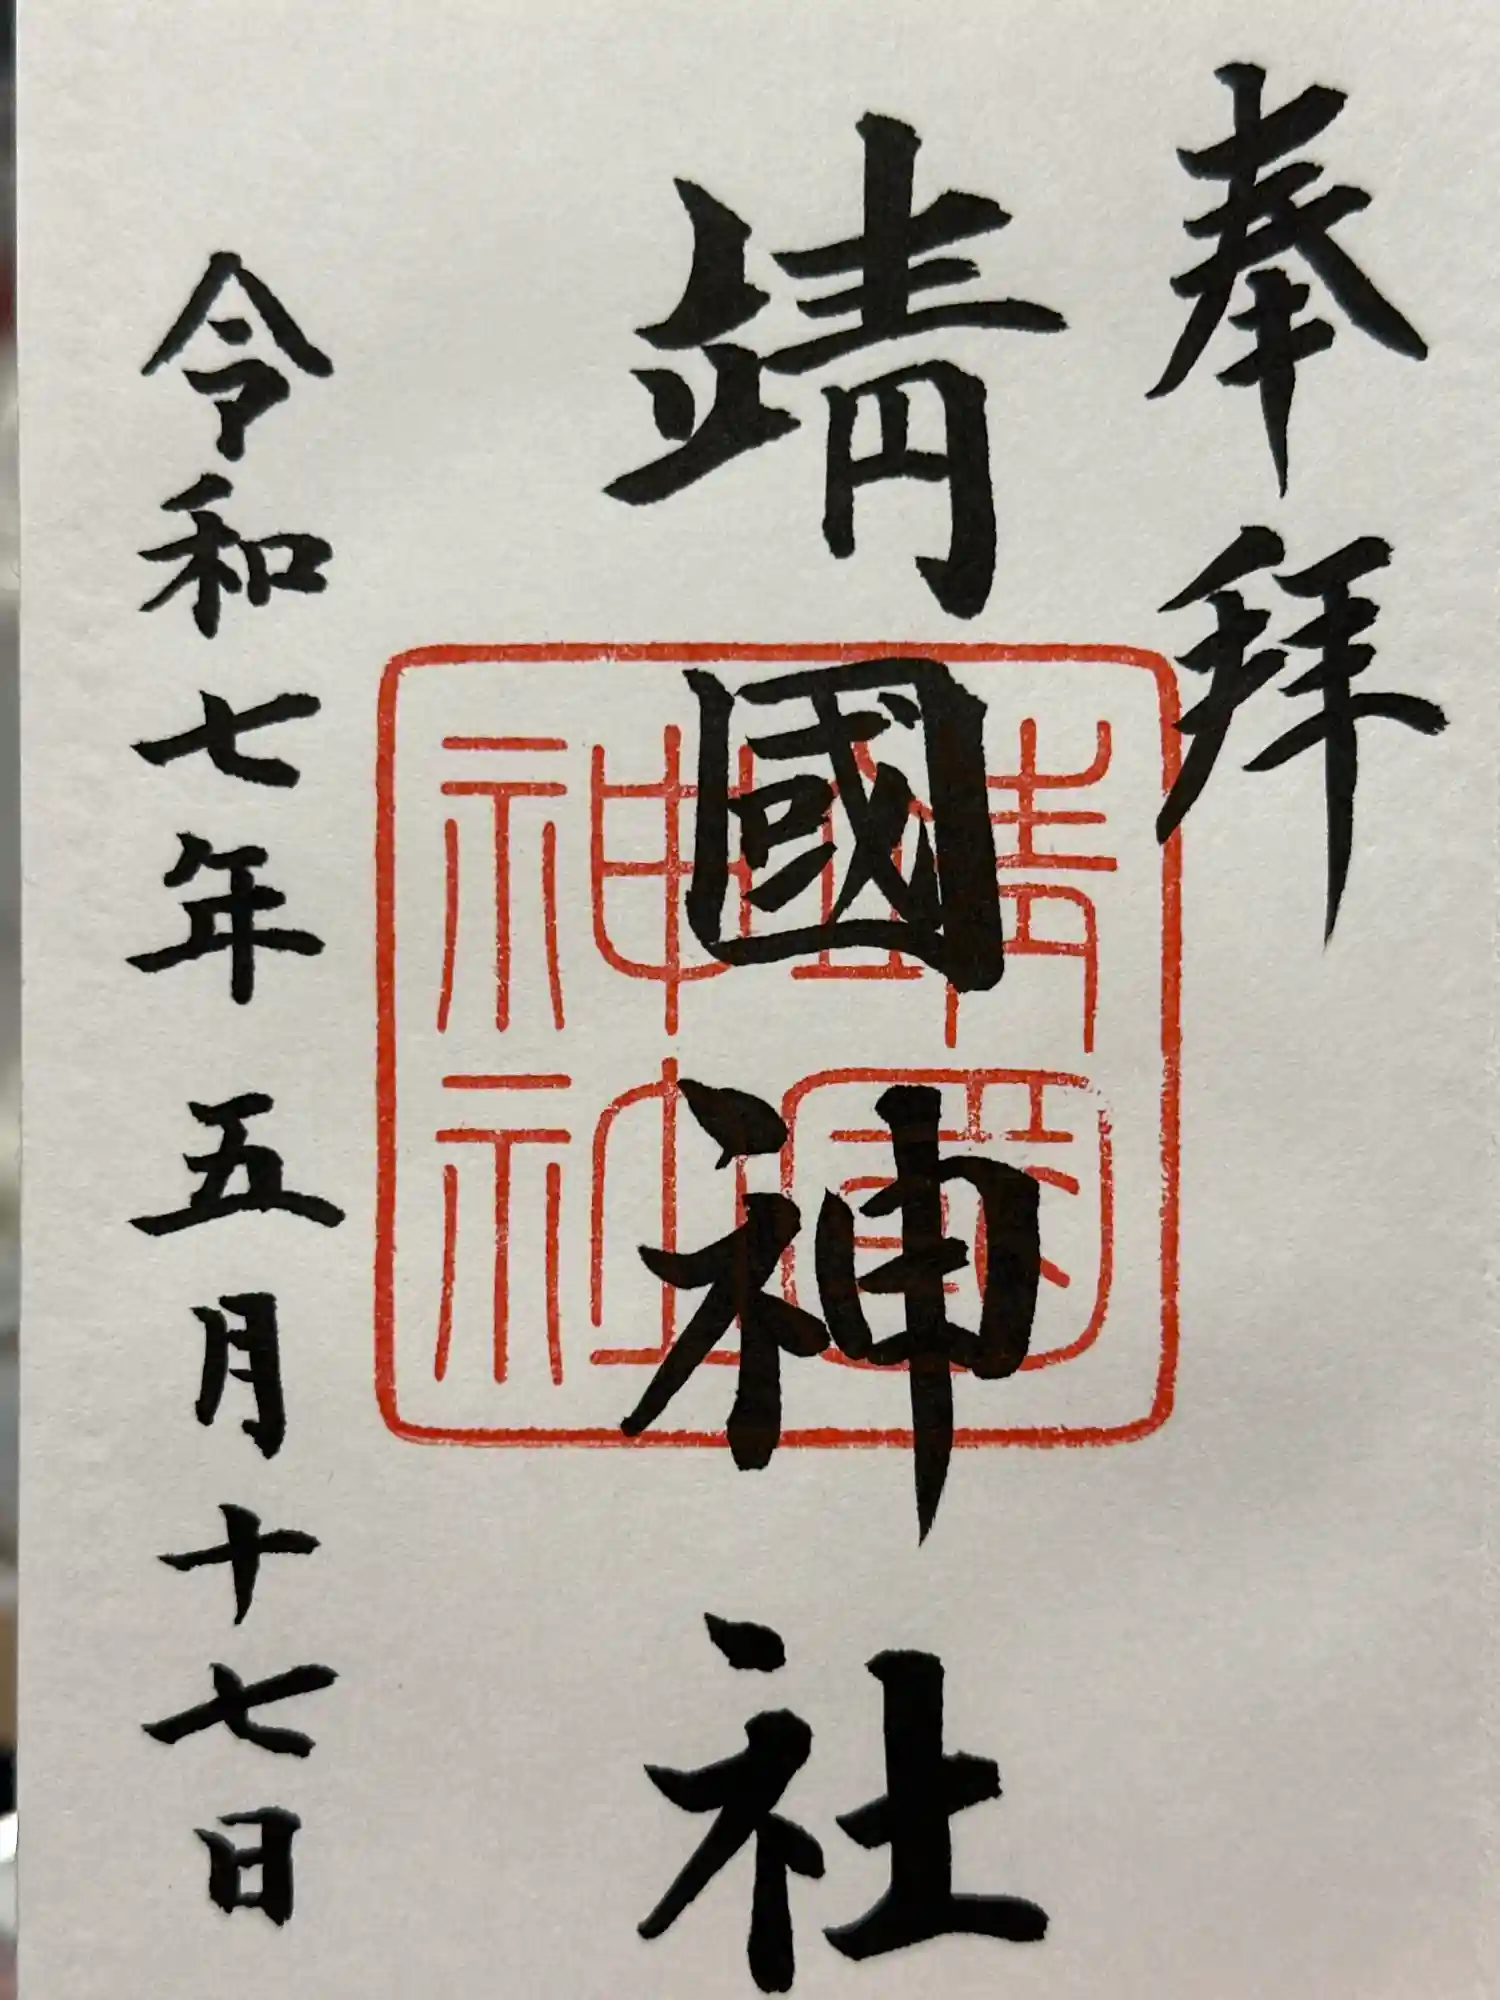 奉拝
靖國神社
靖國神社
令和七年五月十七日